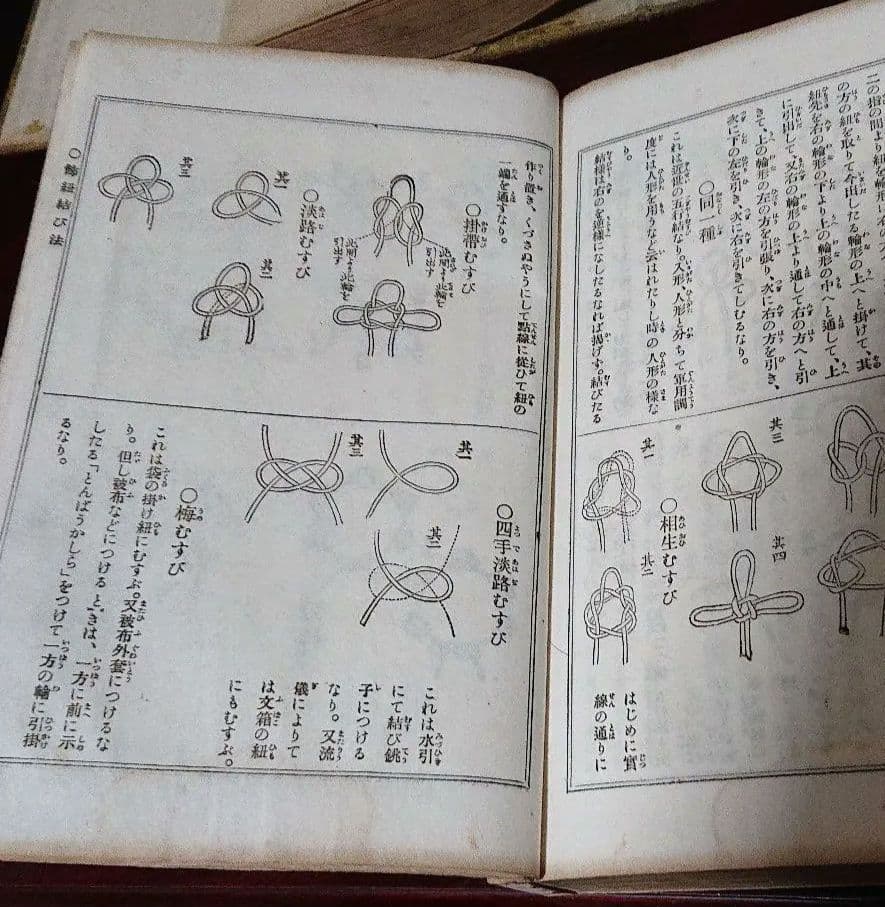 二の指の間より紐を輪形に
の方の紐を取りて今出したる輪形の上へと掛けて、其
紐先を右の輪形の下より上の輪形の中へと通して、上
に引出して、又右の輪形の上より通して右の方へと引
きて、上の輪形の左の方を引張り、次に右の方を引き、
次に下の左を引き、次に右を引きてしむるなり。
〇同一種
これは近世の五行結なり。入形、人形と分ちて軍用調
度には人形を用うなど云はれたりし時の人形の様な
結様は右のを逆様になしたるなれば揚げず。結びたる
り。
其三
其四
〇相生むすび
其一
其二
はじめに實
線の通りに
作り置き、くづさぬやうにして點線に從ひて紐の
一端を通すなり。
〇掛帶むすび
此間より此輪を
引出す
此間より此輪を
引出す
〇淡路むすび
其一
其二
其三
〇四手淡路むすび
其一
其二
其三
これは水引
にて結び銚
子につける
なり。又流
儀によりて
は文箱の紐
にもむすぶ。
〇梅むすび
これは袋の掛け紐にむすぶ。又被布外套につけるな
り。但し被布などにつけるときは、一方に前に示
したる「とんばうかしら」をつけて一方の輪に引掛
るなり。
〇飾紐結び法